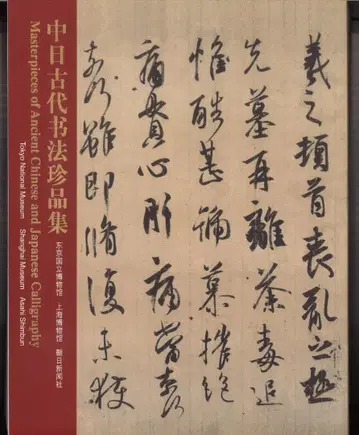 中日古代书法珍品集
Masterpieces of Ancient Chinese and Japanese Calligraphy
东京国立博物馆 上海博物馆 朝日新闻社
Tokyo National Museum Shanghai Museum Asahi Shimbun
羲之頓首喪亂之極
先墓再離荼毒追
惟酷甚號慕摧絕
痛貫心肝痛當奈何
奈何雖即脩復未獲